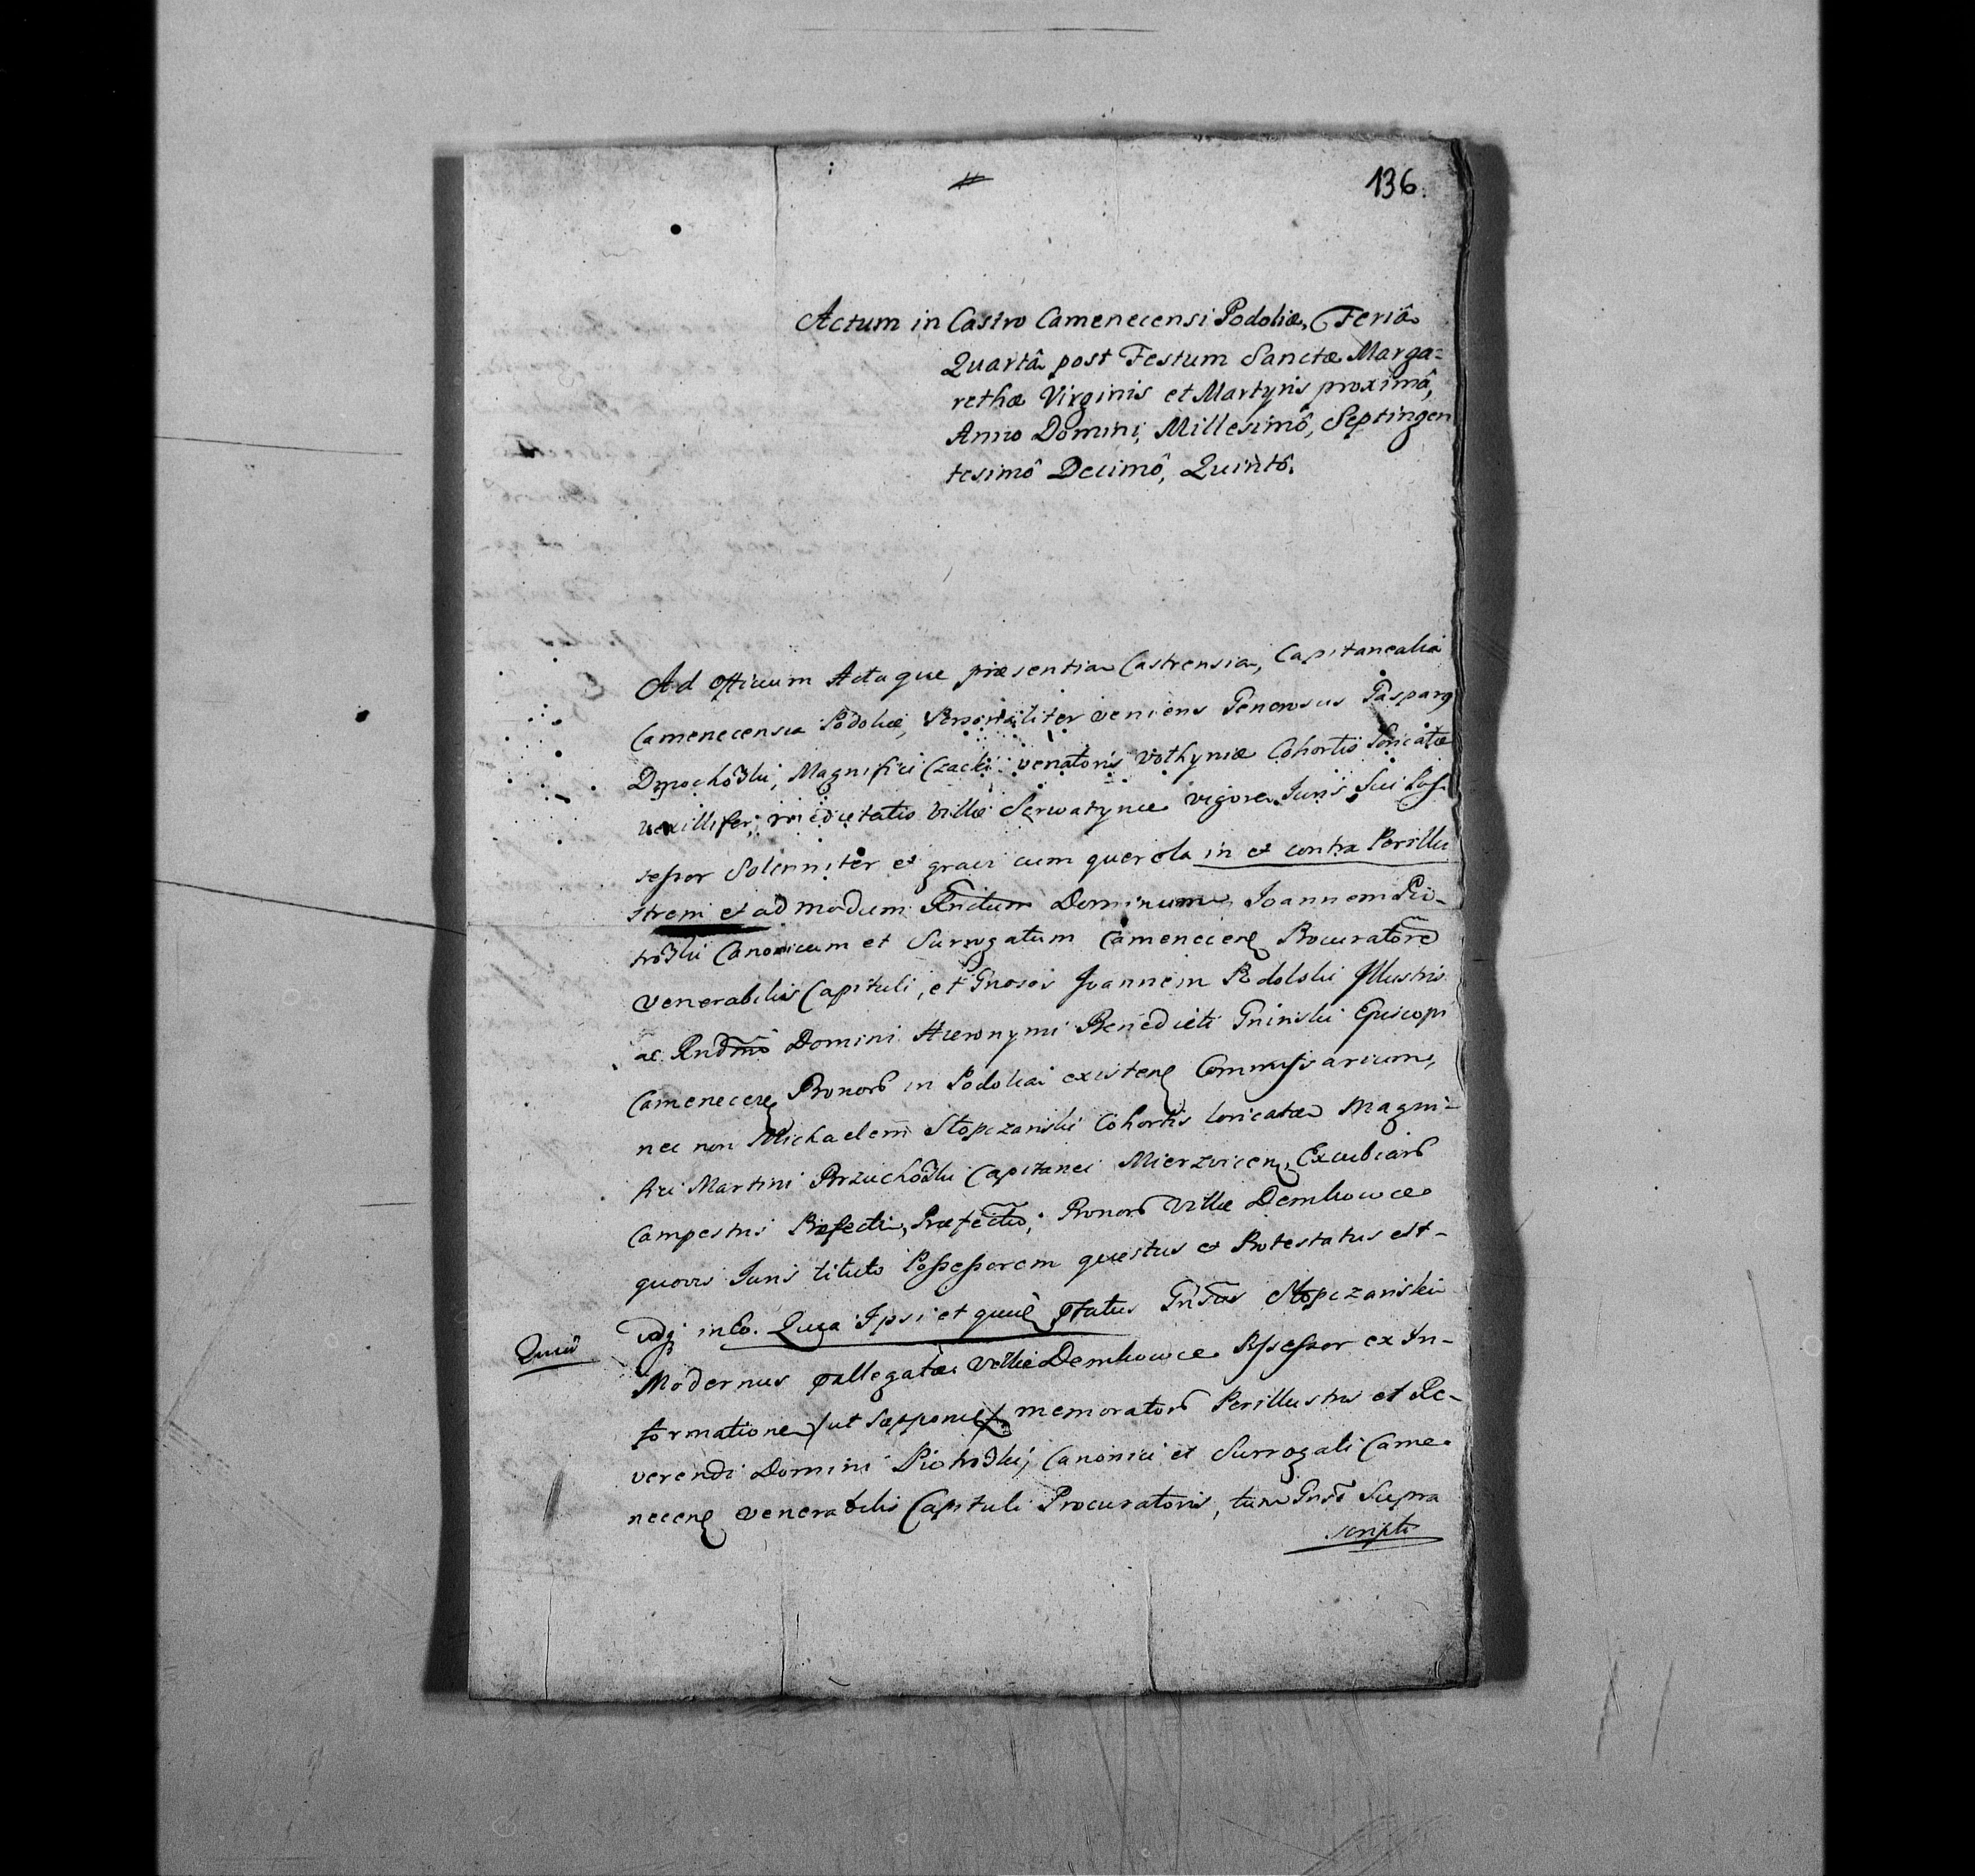 136.
Actum in Castro Camenecensi Podoliæ, Feriâ
Quartâ post Festum Sanctæ Marga=
rethæ Virginis et Martyris proximâ,
Anno Domini, Millesimô, Septingen
tesimô Decimô, Quintô.
Ad Officium Actaque præsentia Castrensia, Capitanealia
Camenecensia Podoliæ, Personaliter veniens Generosus Gaspar
Dmochowski, Magnifici Czacki venatoris Volhyniæ Cohortis Loricatæ
vexillifer, medietatis Villæ Serwatynce vigore Juris Sui Poss
sessor Solenniter et gravi cum querela in et contra Perillu
strem et admodum Rndum Dominum Joannem Pio-
trowski Canonicum et Surrogatum Camenecens Procuratore
venerabilis Capituli, et Gnosos Joannem Podolski Illustris
ac Rndmi Domini Hieronymi Benedicti Gninski Episcopi
Camenecens Bonor in Podolia existen Commissarium,
nec non Michaelem Stopczanski Cohortis loricatæ Magni-
fici Martini Przuchowski Capitanei Mierzvicen, Excubiar
Campestris Præfecti, Præfectum, Bonor Villæ Demkowce
quovis Juris titulo Possessorem questus et Protestatus est-
idq in Eo. Quia Ipsi et quidem Gnsus Stopczanski
Quia
Modernus allegatæ Villæ Demkowce Possessor ex In-
formatione ut memorator Perillustris et Re-
verendi Domini Piotrowski, Canonici et Surrogati Came-
necens venerabilis Capituli Procuratoris, tum Gnsi Supra
scripti